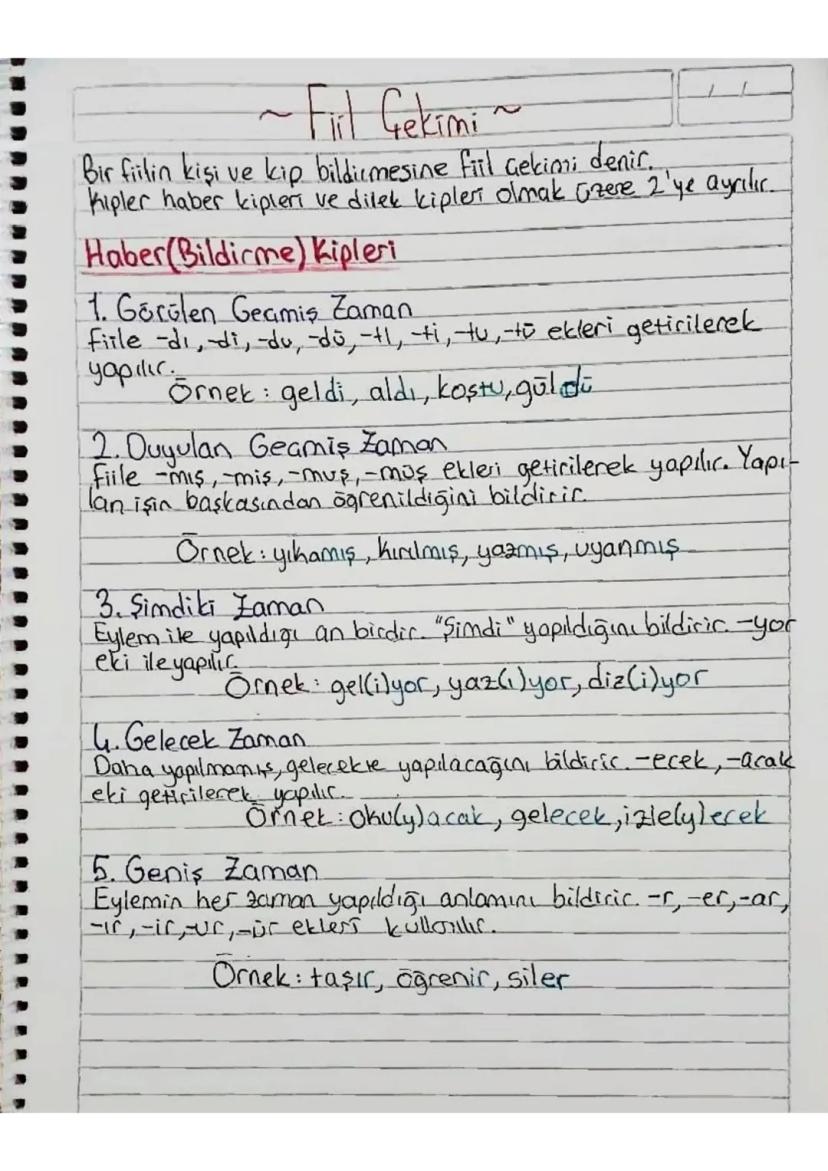 ~ Fiil Çekimi ~
Bir fiilin kişi ve kip bildirmesine fiil çekimi denir.
Kipler haber kipleri ve dilek kipleri olmak üzere 2'ye ayrılır.
Haber(Bildirme) Kipleri
1. Görülen Geçmiş Zaman
fiile -dı, -di, -du, -dü, -tı, -ti, -tu, -tü ekleri getirilerek
yapılır.
Örnek : geldi, aldı, koştu, güldü
2. Duyulan Geçmiş Zaman
fiile -mış, -miş, -muş, -müş ekleri getirilerek yapılır. Yapı-
lan işin başkasından öğrenildiğini bildirir.
Örnek : yıkamış, kırılmış, yazmış, uyanmış
3. Şimdiki Zaman
Eylem ile yapıldığı an birdir. "Şimdi" yapıldığını bildirir. -yor
eki ile yapılır.
Örnek : gel(i)yor, yaz(ı)yor, diz(i)yor
4. Gelecek Zaman
Daha yapılmamış, gelecekte yapılacağını bildirir. -ecek, -acak
eki getirilerek yapılır.
Örnek : oku(y)acak, gelecek, izle(y)ecek
5. Geniş Zaman
Eylemin her zaman yapıldığı anlamını bildirir. -r, -er, -ar,
-ır, -ir, -ur, -ür ekleri kullanılır.
Örnek : taşır, öğrenir, siler